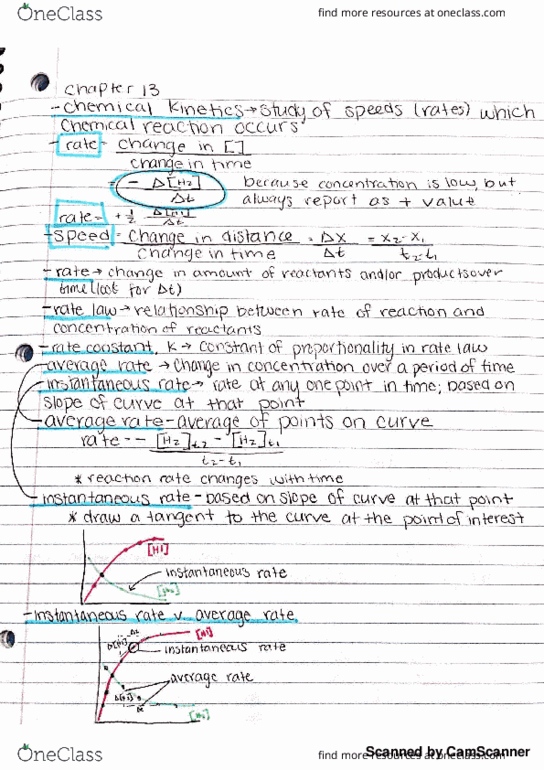 OneClass
find more resources at oneclass.com
Chapter 13
-chemical kinetics→study of speeds (rates) which
chemical reaction occurs
-rate- change in []
change in time
= - Δ[H2]
Δt
because concentration is low, but
always report as + value
rate= +½ Δ[HI]
Δt
-speed- change in distance = Δx = x2-x1
change in time Δt t2-t1
-rate→change in amount of reactants and/or products over
time (look for Δt)
-rate law→relationship between rate of reaction and
concentration of reactants
-rate constant, K→ constant of proportionality in rate law
average rate→change in concentration over a period of time
instantaneous rate→ rate at any one point in time; based on
slope of curve at that point
average rate-average of points on curve
rate=- [H2]t2 - [H2]t1
t2-t1
* reaction rate changes with time
instantaneous rate-based on slope of curve at that point
* draw a tangent to the curve at the point of interest
[HI]
instantaneous rate
-instantaneous rate v average rate
[HI]
instantaneous rate
average rate
OneClass
find more resources at oneclass.com
Scanned by CamScanner